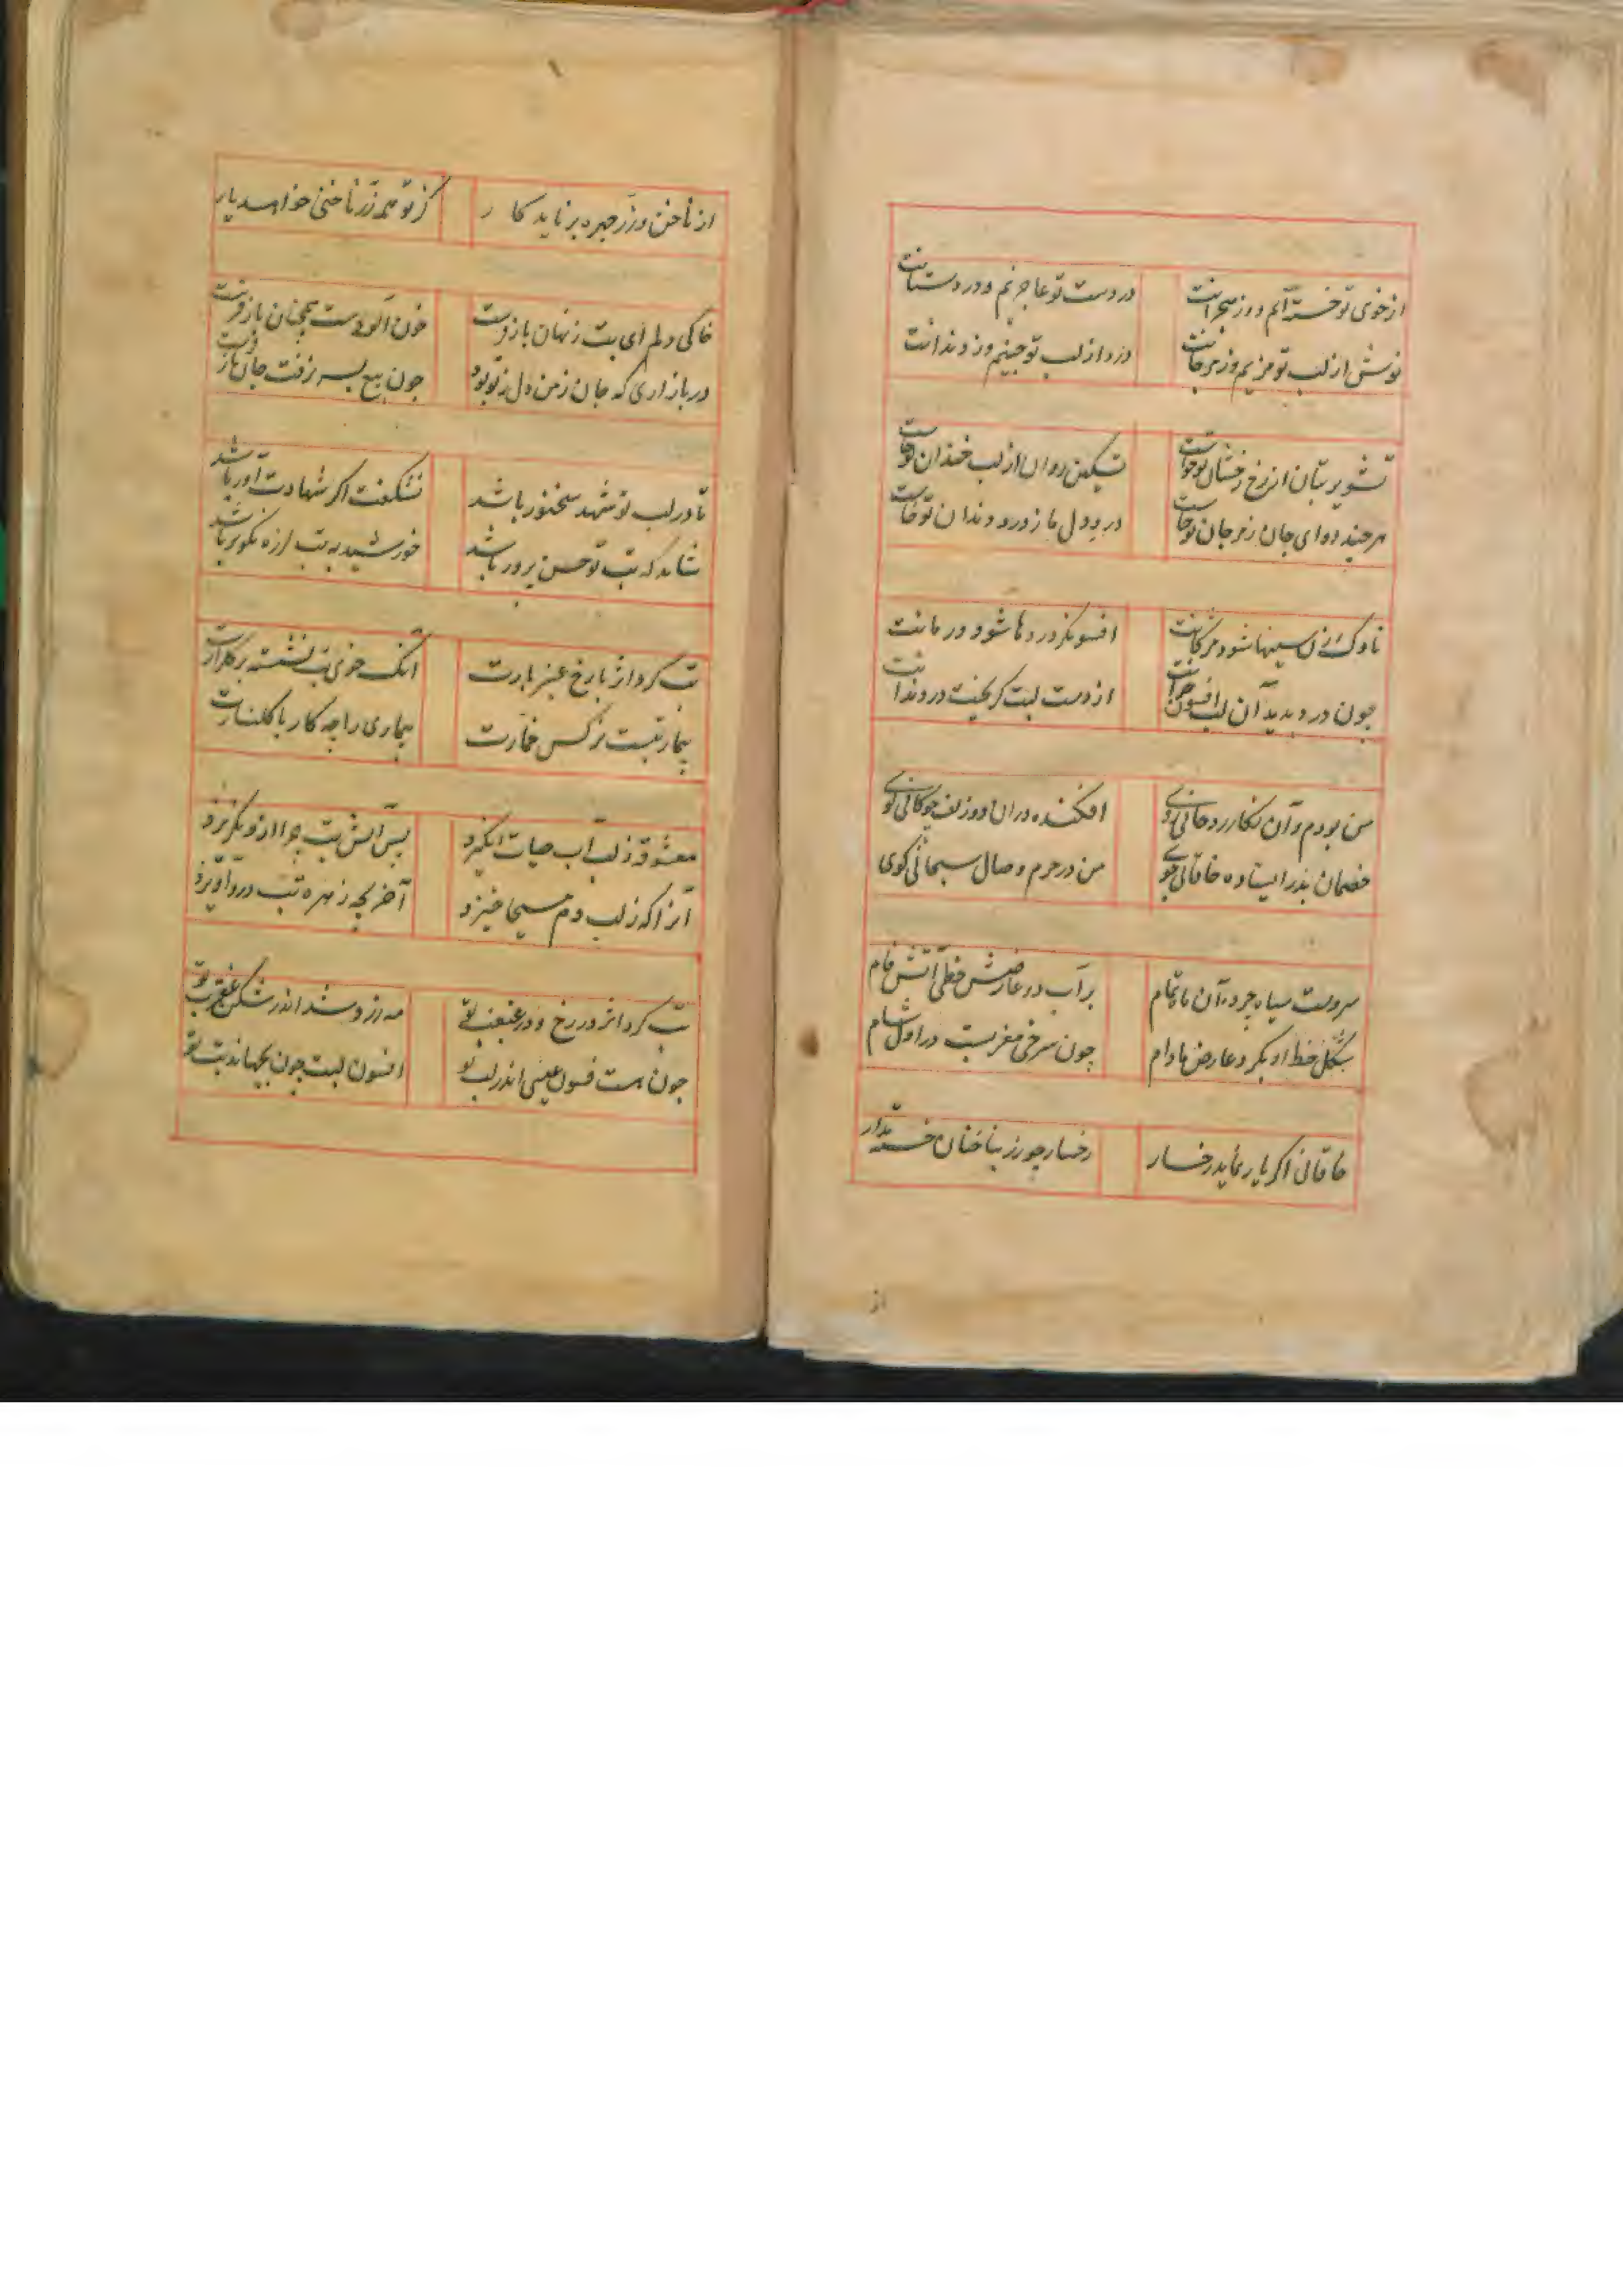 از خوی تو خسته‌ایم و از هجرانت
در دست تو عاجزیم و در دستانت
نوش از لب تو مزیم وز مرجانت
درد از لب تو چینیم وز دندانت
تشویر بتان از رخ رخشان تو خاست
تسکین روان از لب خندان تو خاست
هر چند دوای جان ز مرجان تو خاست
درد دل ما ز درد دندان تو خاست
ناوک زن سینها شود مژگانت
افسونگر دردها شود درمانت
چون درد بدید آن لب افسون
از دست لبت گریخت در دندانت
من بودم و آن نگار روحانی روی
افکنده در آن دو زلف چوگانی گوی
خصمان بدر ایستاده خاقانی جوی
من در حرم وصال سبحانی گوی
سرویست سیاه چرده آن ماه تمام
بر آب در عارضش خطی آتش فام
شکل خط او بگرد عارض مادام
چون سرخی مغربست در اول شام
خاقانی اگر یار نماید رخسار
رخسار چو زر بناخنان خسته مدار
از
از ناخن و زر چهره بر ناید کار
کز تو همه زر ناخنی خواهد یار
خاکی دلم ای بت ز نهان باز فرست
خون آلودست همچنان باز فرست
در بازاری که جان ز من دل ز تو بود
چون بیع بسر نرفت جان باز فرست
تا در لب تو شهد سخنور باشد
نشکفت اگر شهادت آور باشد
شاید که تب تو حسن پرور باشد
خورشید به تب لرزه نکوتر باشد
تب کرد اثر با رخ عنبر بارت
اینک خوی تب نشسته بر گلزارت
بیمار تبست نرگس خمارت
بیماری را چه کار با گلنارت
معشوق ز لب آب حیات انگیزد
پس آتش تب چرا ازو نگریزد
آنرا که ز لب دم مسیحا خیزد
آخر بچه زهره تب درو آویزد
تب کرد اثر در رخ و در غبغب تو
مه زرد شد اندر شکن عقرب تو
چون هست فسون عیسی اندر لب تو
افسون لبت چون نجهاند تب تو